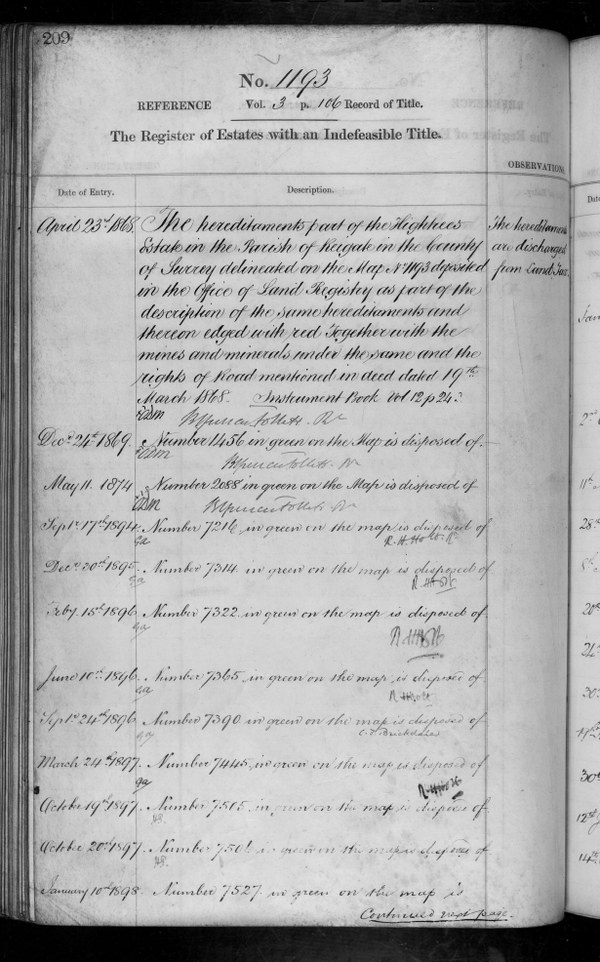 209
No. 1193
REFERENCE Vol. 3 p. 106 Record of Title.
The Register of Estates with an Indefeasible Title.
OBSERVATIONS
Date of Entry.
Description.
April 23rd 1868
The hereditaments part of the Hightrees
Estate in the Parish of Reigate in the County
of Surrey delineated on the Map No 1193 deposited
in the Office of Land Registry as part of the
description of the same hereditaments and
thereon edged with red Together with the
mines and minerals under the same and the
rights of Road mentioned in deed dated 19th
March 1868. Instrument Book Vol 12 p 24.
The hereditaments
are discharged
from Land Tax.
Decr 24th 1869. Number 1456 in green on the Map is disposed of
May 11. 1874 Number 2088 in green on the Map is disposed of
Septr 17th 1894. Number 7216 in green on the map is disposed of
R. H. Holt R
Decr 30th 1895. Number 7314 in green on the map is disposed of
Feby. 15th 1896. Number 7322 in green on the map is disposed of
June 10th 1896. Number 7365 in green on the map is disposed of
R H Holt
Septr 24th 1896. Number 7390 in green on the map is disposed of
March 24th 1897. Number 7445 in green on the map is disposed of
October 19th 1897. Number 7505 in green on the map is disposed of
October 20th 1897. Number 750 in green on the map is disposed of
January 10th 1898. Number 7527 in green on the map is
Continued next page.